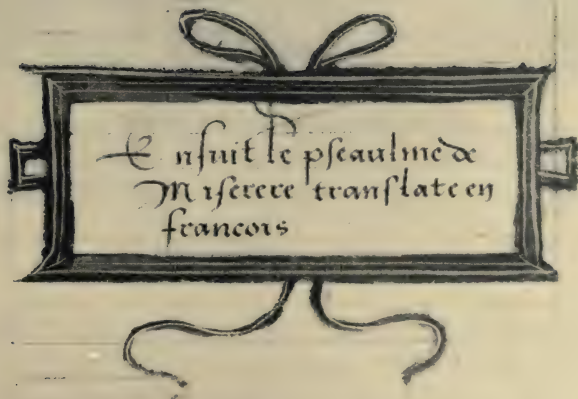 Ensuit le pseaulme de
Miserere translate en
francois